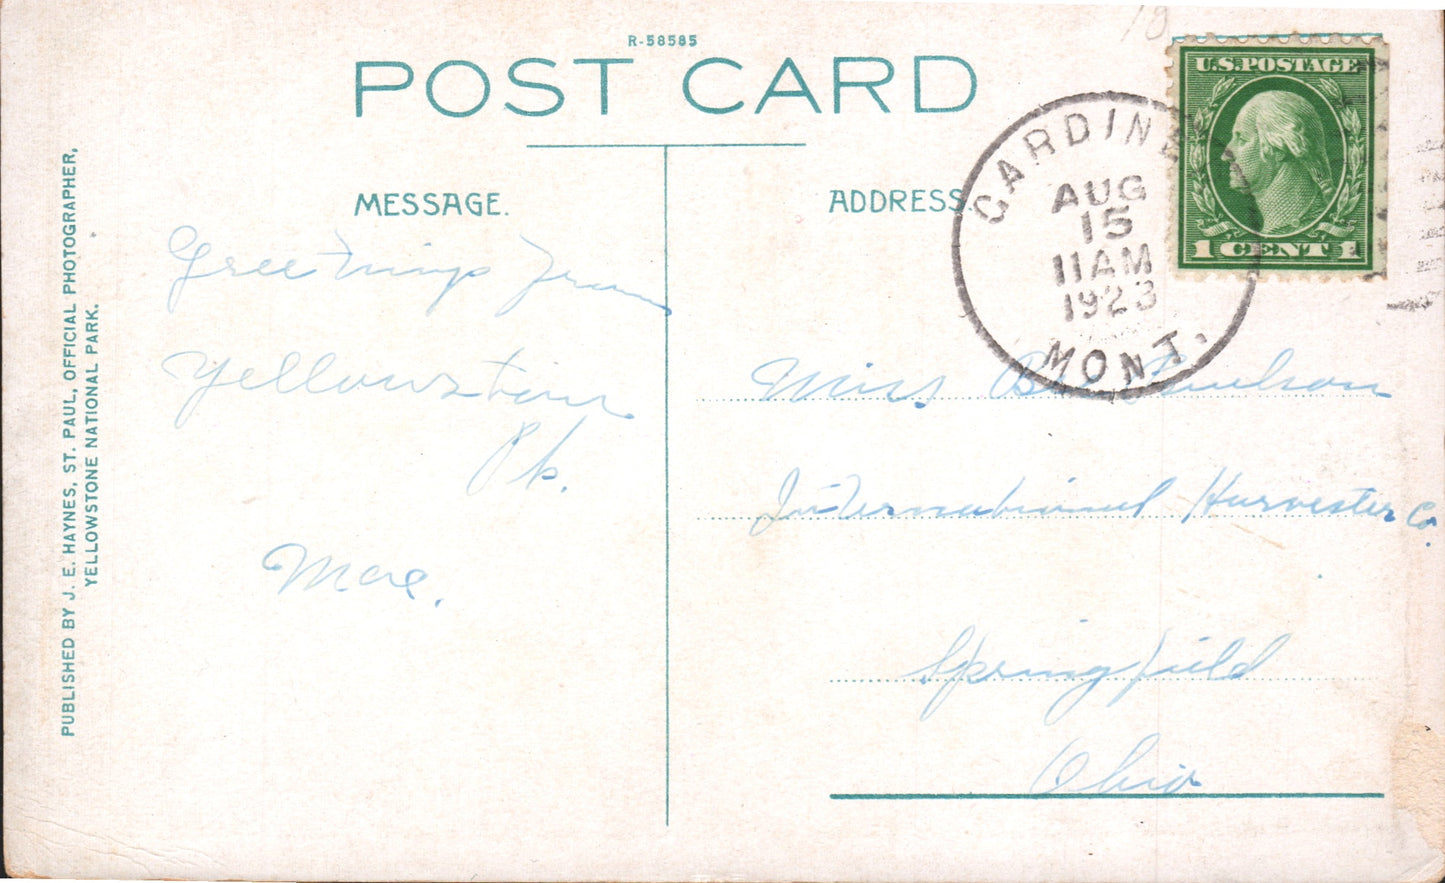 R-58585
POST CARD
MESSAGE.
ADDRESS.
U.S. POSTAGE
1 CENT 1
AUG
15
11AM
1923
MONT.
Greetings From
Yellowstone
Pk.
Mae.
Miss
International Harvester Co.
Springfield
Ohio
PUBLISHED BY J. E. HAYNES, ST. PAUL, OFFICIAL PHOTOGRAPHER,
YELLOWSTONE NATIONAL PARK.